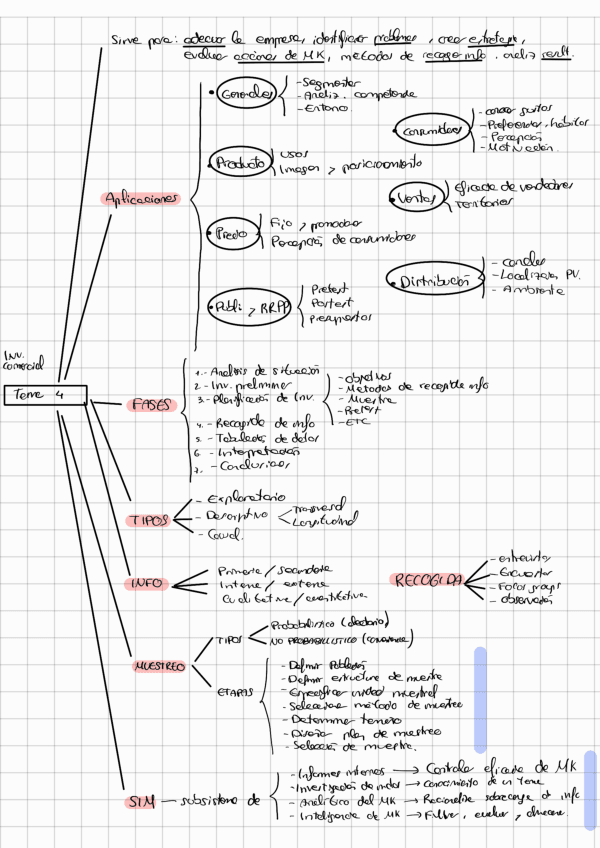 Sirve para: adecuar la empresa, identificar problemas, crear estrategia,
evaluar acciones de MK, métodos de recoger info. analiz result.
Aplicaciones
• Generales
- Segmentar
- Analiz. competencia
- Entorno
• Consumidores
- conocer gustos
- Preferencias, hábitos
- Percepción
- Motivación.
• Producto
usos
Imagen y posicionamiento
• Ventas
eficacia de vendedores
Territorios
• Precio
Fijo y promedor
Percepción de consumidores
• Distribución
- canales
- Localización PV.
- Ambiente
• Publi y RRPP
Pretest
Postest
presupuestos
Inv.
comercial
Tema 4
FASES
1. - Análisis de situación
2 - Inv. preliminar
3. - Planificación de Inv.
- objetivos
- Métodos de recogida info
- Muestra
- Pretest
- ETC
4. - Recogida de info
5. - Tabulación de datos
6 - Interpretación
7. - Conclusiones
TIPOS
- Exploratorio
- Descriptivo
Transversal
Longitudinal
- Causal.
INFO
Primaria / secundaria
Interna / externa
Cualitativa / cuantitativa
RECOGIDA
- entrevistas
- Encuestas
- Focus groups
- observación
MUESTREO
TIPOS
Probabilístico (aleatorio)
NO PROBABILISTICO (conveniencia)
ETAPAS
- Definir Población
- Definir estructura de muestra
- Especificar unidad muestral
- Seleccionar método de muestreo
- Determinar tamaño
- Diseñar plan de muestreo
- Selección de muestra.
SIM - subsistema de
- Informes internos → Controla eficacia de MK
- Investigación de mdos → conocimiento de un tema
- Analítico del MK → Racionaliza sobrecarga d info
- Inteligencia de MK → Filtrar, evaluar y almacenar.